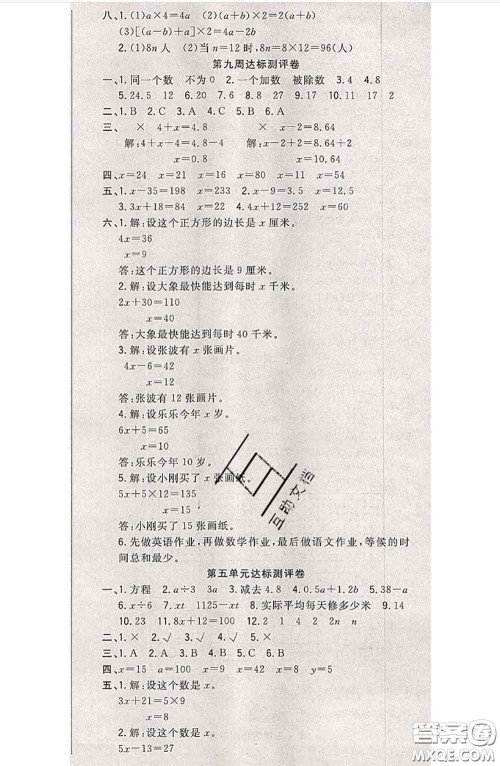 八、1.(1)a×4=4a　(2)(a+b)×2=2(a+b)
(3)[(a+b)+a]×2=4a-2b
2.(1)8n人　(2)当n=12时,8n=8×12=96(人)
第九周达标测评卷
一、1.同一个数　不为0　2.一个加数　被除数　3.4　4.8
5.24.5　12　6.20　7.6　8.8　27　9.17　10.11　17　2
二、1.B　2.C　3.A　4.B　5.C　6.B
三、　×　4+x=4.8　　×　x-2=8.64
解:4+x-4=4.8-4　　解:x-2+2=8.64+2
x=0.8　　x=10.64
四、x=24　x=21　x=16　x=80　x=11　x=54
五、1.x-35=198　x=233　2.x-9.5=3　x=12.5
3.3x+18=84　x=22　4.4x+12=252　x=60
六、1.解:设这个正方形的边长是x厘米。
4x=36
x=9
答:这个正方形的边长是9厘米。
2.解:设大象最快能达到每时x千米。
2x+30=110
x=40
答:大象最快能达到每时40千米。
3.解:设张波有x张画片。
4x-6=42
x=12
答:张波有12张画片。
4.解:设乐乐今年x岁。
6x+5=65
x=10
答:乐乐今年10岁。
5.解:设小刚买了x张画纸。
6x+5×12=150
x=15
答:小刚买了15张画纸。
6.先做英语作业,再做数学作业,最后做语文作业,等候的时
间总和最少。
第五单元达标测评卷
一、1.方程　2.a÷3　3a　3.减去4.8　4.0.5a+1.2b　5.38-a
6.x÷6　7.xt　1125-xt　8.实际平均每天修多少米　9.14
10.23　11.8x+12=100　12.2　1　2　4　2n　n
二、1.×　2.√　3.√　4.×　5.√
三、1.A　2.A　3.B　4.C　5.C　6.A
四、x=15　a=100　x=9　x=42　x=8　y=5
五、1.解:设这个数是x。
3x+21=5×9
x=8
2.解:设这个数是x。
5x-13=27
互助文档
答案圈
MXQE.COM